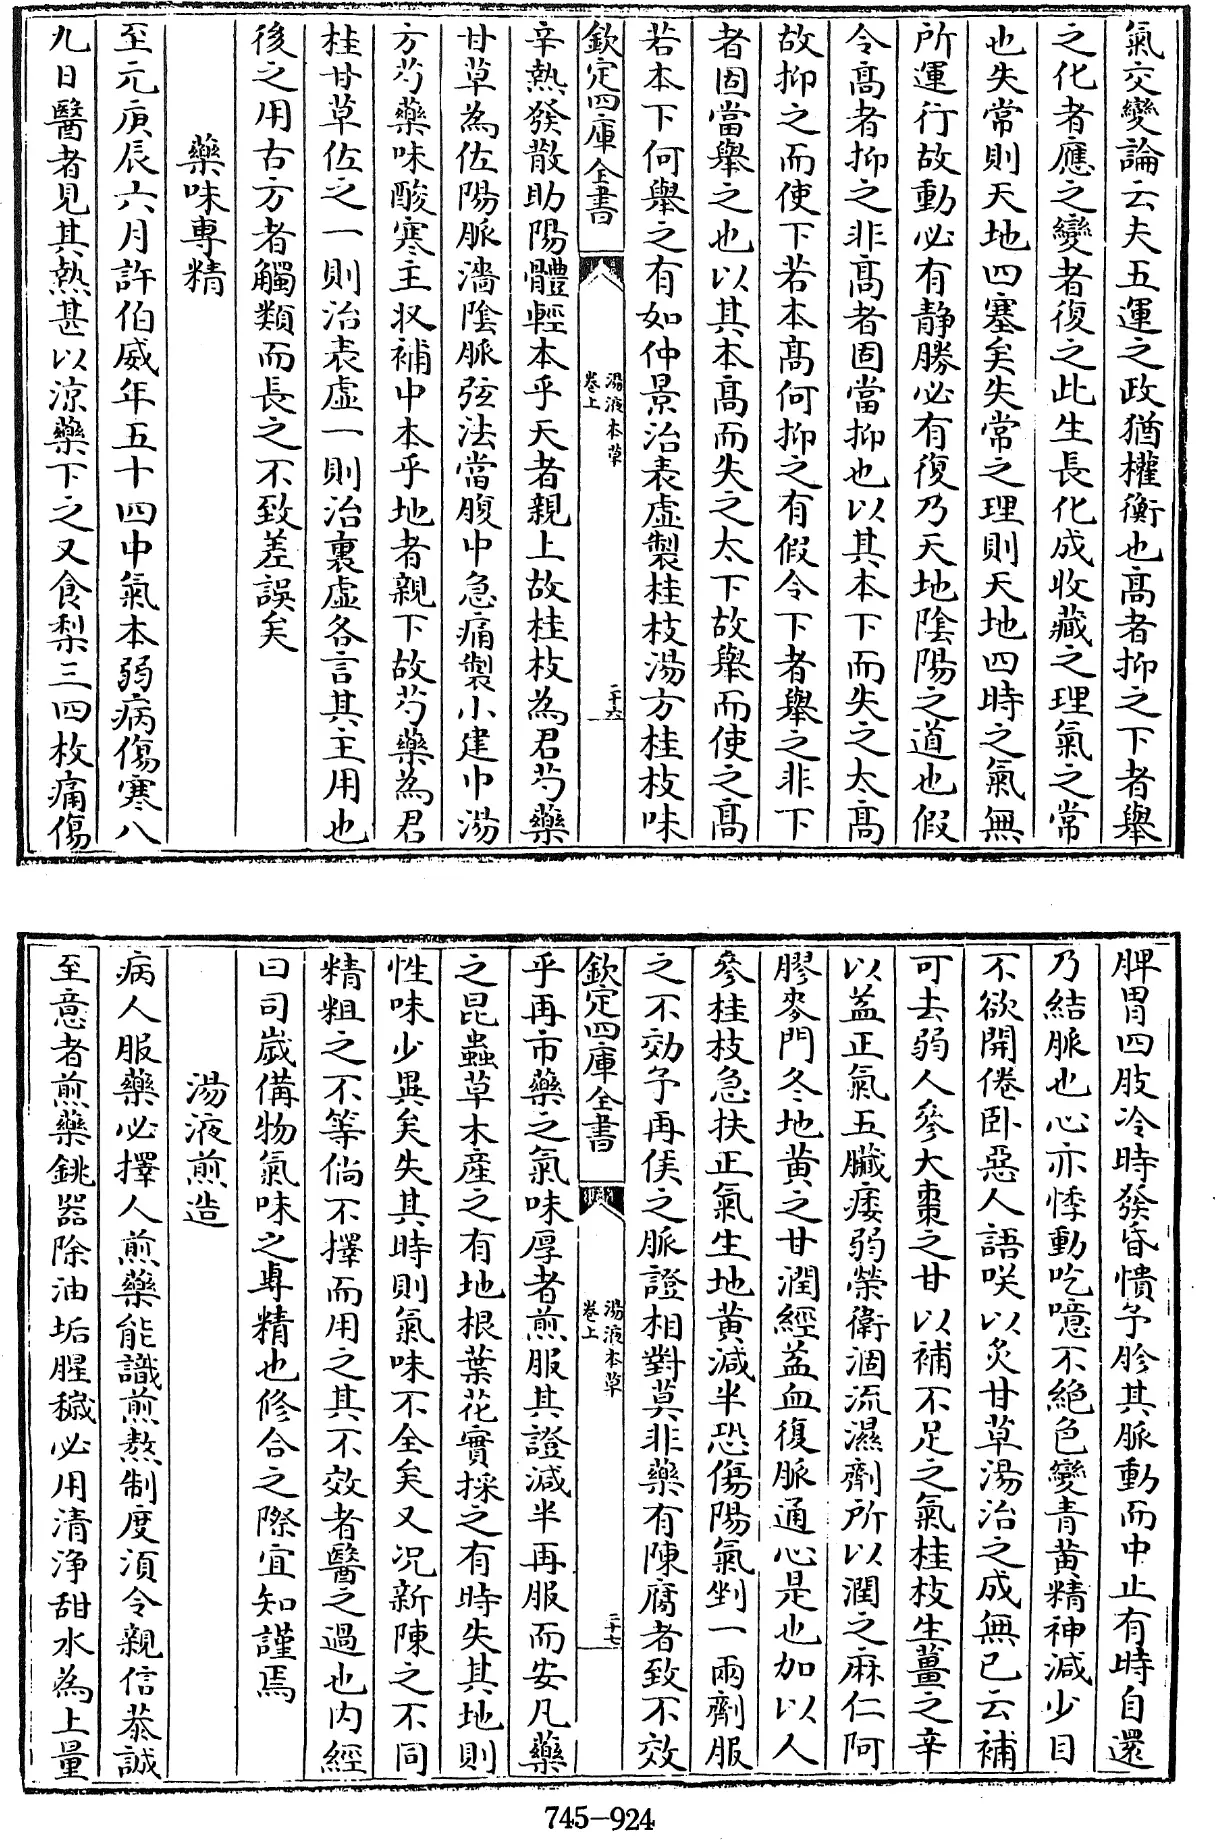 氣交變論云夫五運之政猶權衡也髙者抑之下者舉
之化者應之變者復之此生長化成收藏之理氣之常
也失常則天地四塞矣失常之理則天地四時之氣無
所運行故動必有静勝必有復乃天地陰陽之道也假
令髙者抑之非髙者固當抑也以其本下而失之太髙
故抑之而使下若本髙何抑之有假令下者舉之非下
者固當舉之也以其本髙而失之太下故舉而使之髙
若本下何舉之有如仲景治表虛製桂枝湯方桂枝味
欽定四庫全書
湯液本草
卷上
二十六
辛熱發散助陽體輕本乎天者親上故桂枝為君芍藥
甘草為佐陽脈濇陰脈弦法當腹中急痛製小建中湯
方芍藥味酸寒主収補中本乎地者親下故芍藥為君
桂甘草佐之一則治表虛一則治裏虛各言其主用也
後之用古方者觸類而長之不致差誤矣
藥味専精
至元庚辰六月許伯威年五十四中氣本弱病傷寒八
九日醫者見其熱甚以涼藥下之又食梨三四枚痛傷
脾胃四肢冷時發昏憒予胗其脈動而中止有時自還
乃結脈也心亦悸動吃噫不絶色變青黄精神減少目
不欲開倦卧惡人語咲以炙甘草湯治之成無已云補
可去弱人參大棗之甘以補不足之氣桂枝生薑之辛
以益正氣五臟痿弱榮衛涸流濕劑所以潤之麻仁阿
膠麥門冬地黄之甘潤經益血復脈通心是也加以人
參桂枝急扶正氣生地黄減半恐傷陽氣剉一兩劑服
之不効予再俟之脈證相對莫非藥有陳腐者致不效
欽定四庫全書
湯液本草
卷上
二十七
乎再市藥之氣味厚者煎服其證減半再服而安凡藥
之昆蟲草木産之有地根葉花實採之有時失其地則
性味少異矣失其時則氣味不全矣又况新陳之不同
精粗之不等倘不擇而用之其不效者醫之過也内經
曰司嵗備物氣味之専精也修合之際宜知謹焉
湯液煎造
病人服藥必擇人煎藥能識煎熬制度湏令親信恭誠
至意者煎藥銚器除油垢腥穢必用清浄甜水為上量
745-924